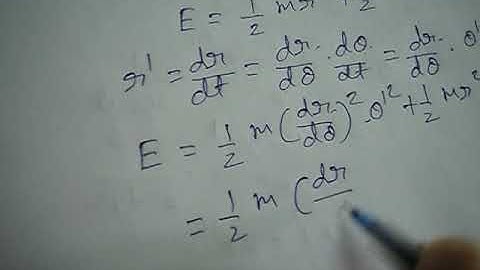 E = 1/2 mr
r' = dr/dt = dr/dθ · dθ/dt = dr/dθ · θ'
E = 1/2 m (dr/dθ)² · θ'² + 1/2 mr²
= 1/2 m (dr